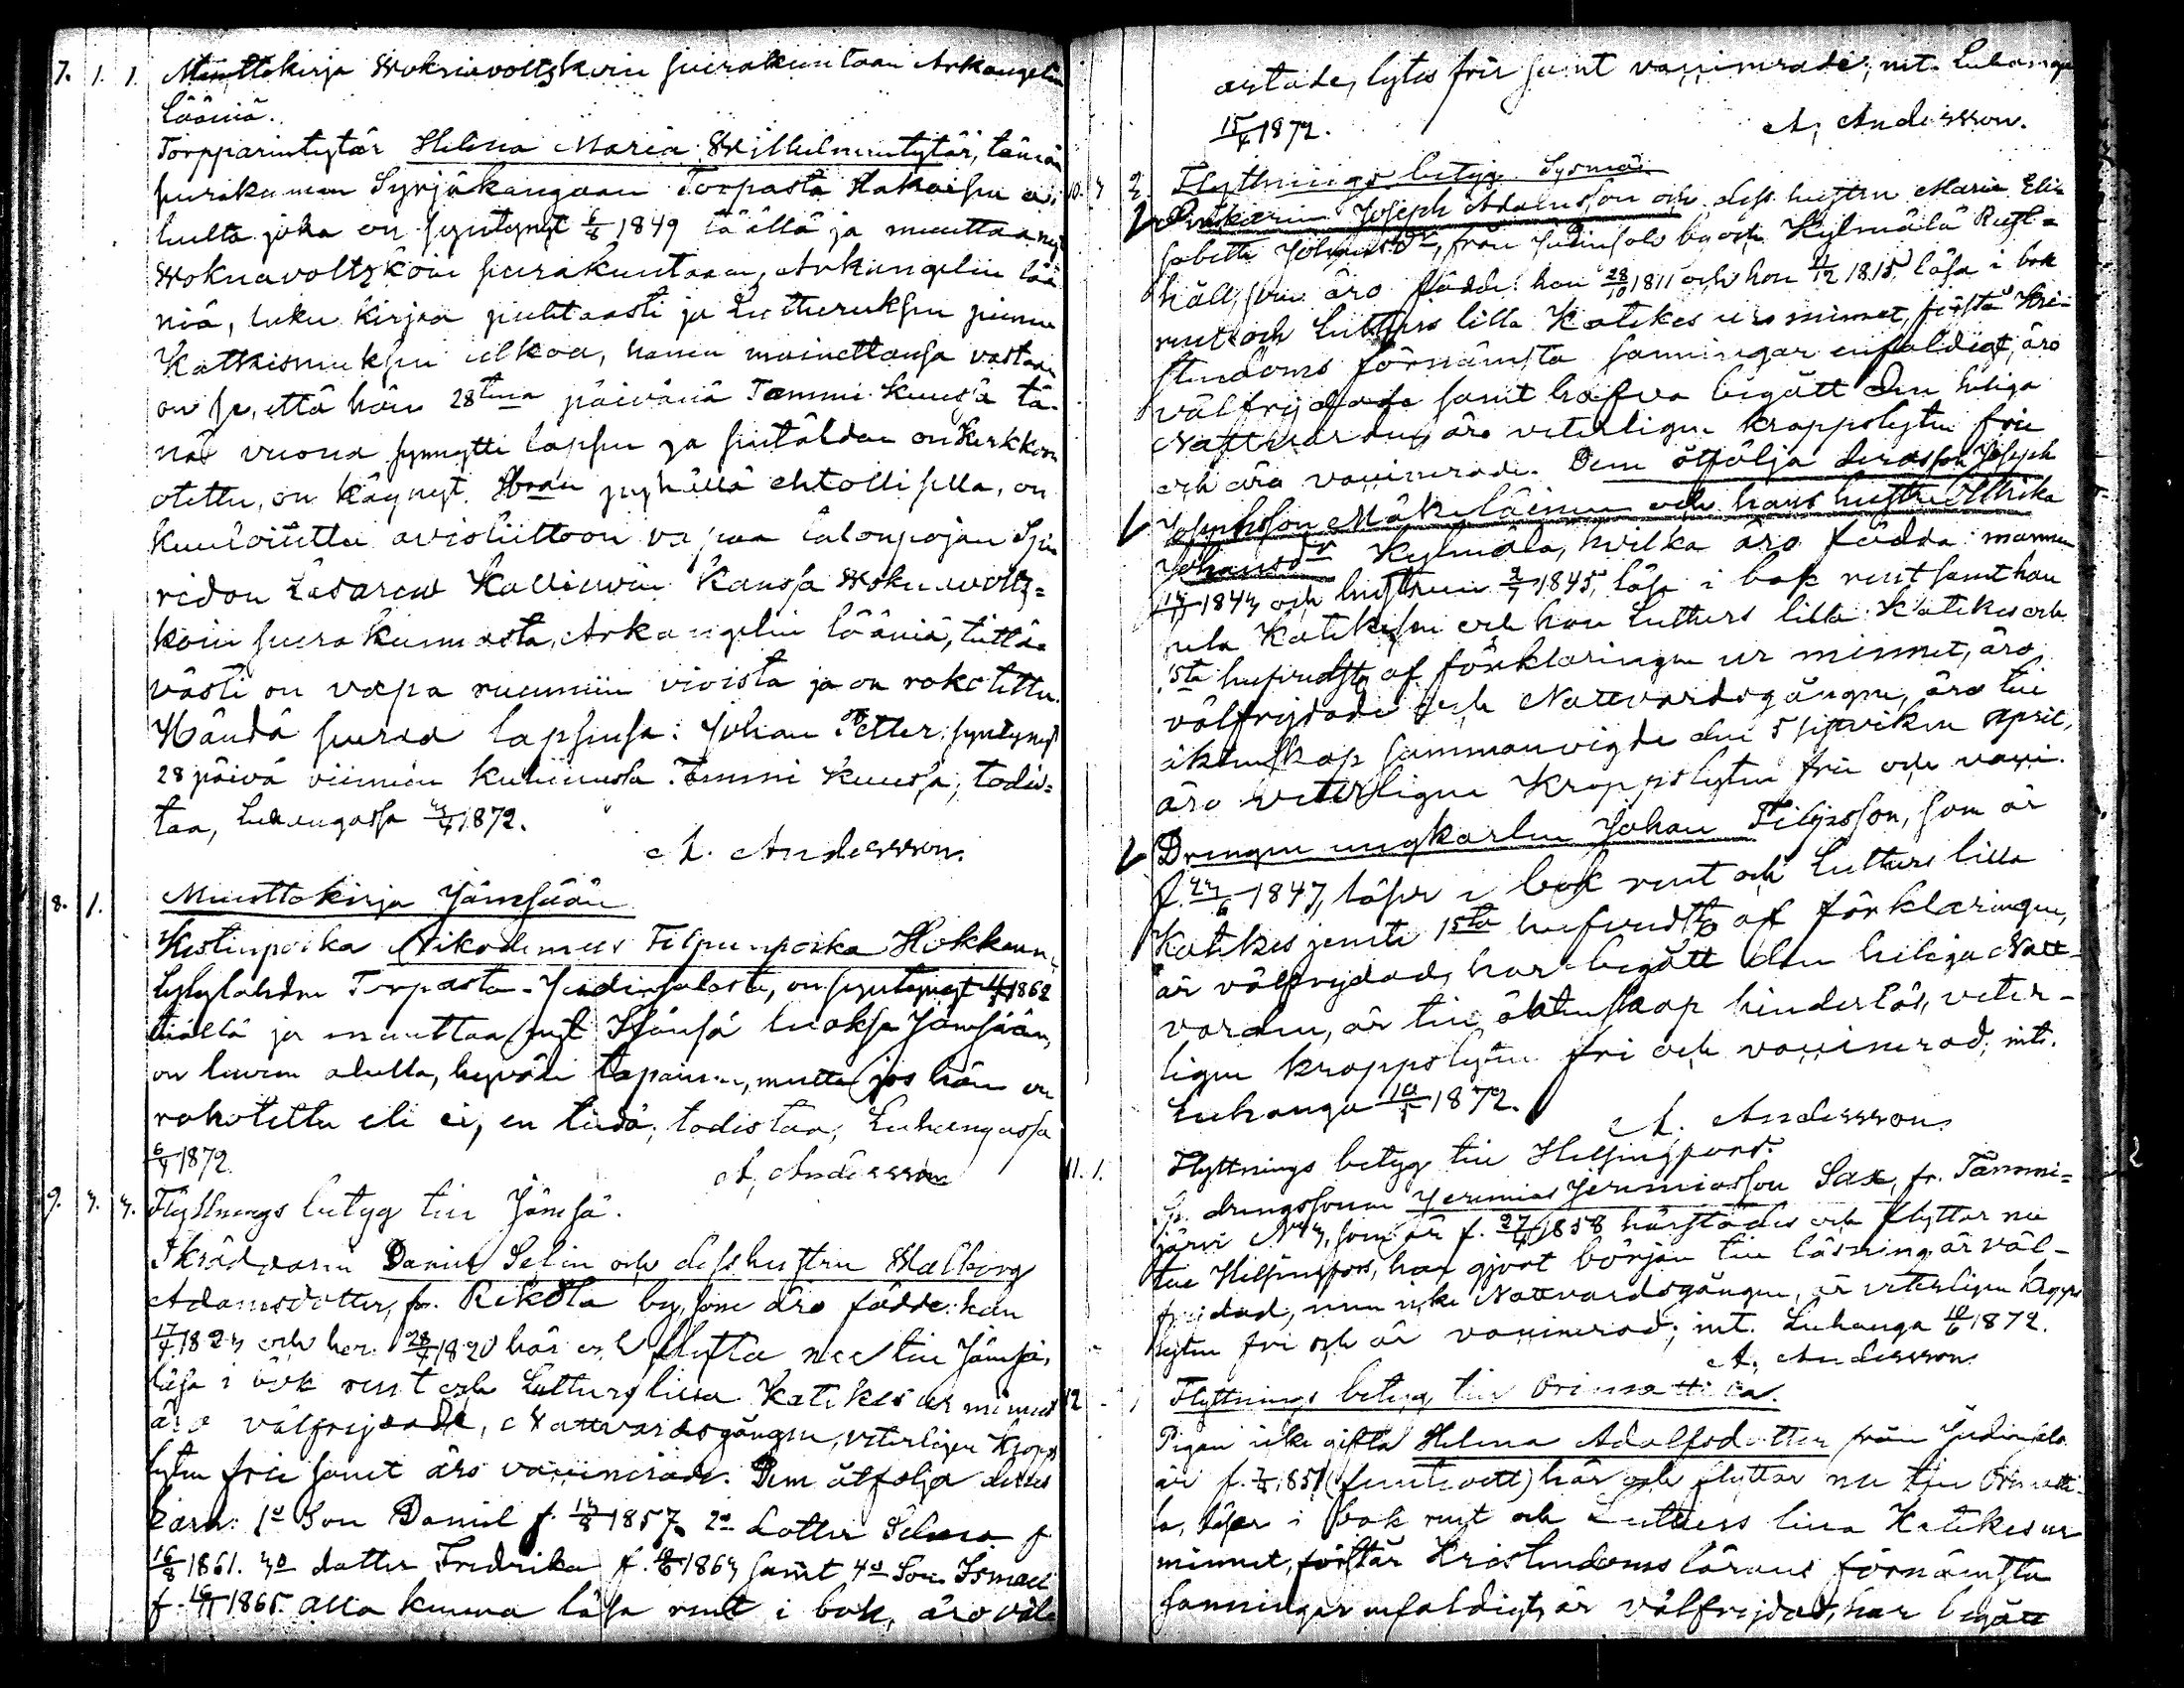 7. 1. 1. Muuttokirja Woknavoltzkoin seurakuntaan Arkangelin
lääniä.
Torpparintytär Helena Maria Wilhelmintytär, tämän
seurakunnan Syrjäkangaan Torpasta
hulta joka on syntynyt 6/8 1849 täällä ja muuttaa nyt
Woknavoltzkoin seurakuntaan, Arkangelin lää
niä, lukee kirjaa puhtaasti ja Lutheruksen pienen
Katkismuksen ulkoa, hänen mainettansa vastaan
on se, että hän 28tena päivänä Tammi Kuussa tä-
nä vuonna synnytti lapsen ja sentähden on Kerkkoon
otettu, on käynyt Herran pyhällä ehtollisella, on
kuuloitettu avioliittoon vapaa talonpojan Spi
ridon Lasarew Kallinin kanssa Woknawoltz=
koin seurakunnasta, Arkangelin lääniä, tiettä-
västi on vapa ruumiin vioista ja on rokotettu.
Händä seuraa lapsensa: Johan Petter, syntynyt
28 päivä viimein kuluneessa Tammi Kuussa; todis=
taa, Luhangassa 3/4 1872.
A. Andersson.
8. 1. Muuttokirja Jämsään
Kestinpoika Nikodemus Filpunpoika Hokkanen,
Lylylahden Torpasta Judinsalosta, on syntynyt 1862
täällä ja muuttaa nyt Isänsä luoksa Jämsään,
on luvun alulla, hyvän tapainen, mutta jos hän on
rokotettu eli ei, en tiedä; todistaa, Luhangassa
6/4 1872.
A. Andersson
9. 3. 3. Flyttnings betyg till Jämsä.
Skräddaren Daniel Selin och dess hustru Walborg
Adamsdotter, fr. Rekola by, som äro födde: han
17/7 1823 och hon 28/4 1820 här och flytta nu till Jämsä,
läsa i bok rent och Lutters lilla Katekes ur minnet
äro välfrejdade, Nattvardsgångne, veterligen kropps
lyten frie samt äro vaccinerade. Dem åtfölja deras
barn: 1o Son Daniel f. 13/8 1857. 2o dotter Selma f
16/8 1861. 3o dotter Fredrika f. 1863 samt 4o Son Ismael
f. 16/11 1865. alla kunna läsa rent i bok, äro väl
artade, lytes frie samt vaccinerade; int. Luhanga
15/4 1872.
A. Andersson.
10. 3 2. Flyttnings betyg Sysmä
Enkarin Joseph Adamsson och dess hustru Maria Eli
sabetta Johansdr, från Judinsalo by och Kylmälä Rust=
håll, som äro födde: han 28/10 1811 och hon 11/12 1815, läsa i bok
rent och Lutters lilla Katekes ur minnet, förstå Kri-
stendoms förnämsta sanningar enfaldigt, äro
välfrejdade samt hafva begått den heliga
Nattvarden, äro veterligen kroppslyten frie
och äro vaccinerade. Dem åtfölja deras son Joseph
Josephsson Mäkeläinen och hans hustru Ulrika
Johansdr Kylmälä, hvilka äro födda: mannen
1843 och hustrun 2/7 1845, läsa i bok rent samt han
hela Katekesen och hon Lutters lilla Katekes och
1sta hufvudst. af förklaringen ur minnet, äro
välfrejdade och Nattvardsgångne, äro till
äktenskap sammanvigde den 5 sistvikne April,
äro veterligen Kroppslyten frie och vacci.
Drengen ungkarlen Johan Filipsson, som är
f. 1847, läser i bok rent och Lutters lilla
Katekes jemte 1sta hufvudst. af förklaringen,
är välfrejdad, har begått den heliga Natt-
varden, är till äktenskap hinderlös, veter-
ligen kroppslyten fri och vaccinerad; int.
Luhanga 10/5 1872.
A. Andersson
11. 1. Flyttnings betyg till Helsingfors.
drengsonen Jeremias Jeremiasson Sax, fr. Tammi=
järvi N 3, som är f. 27/4 1858 härstädes och flyttar nu
till Helsingfors, har gjort början till läsning är väl-
frejdad, men icke Nattvardsgången, är veterligen kropps
lyten fri och är vaccinerad; int. Luhanga 10/6 1872.
A. Andersson
12 1 Flyttnings betyg till Orimattila.
Pigan icke gifta Helena Adolfsdotter från Judinsalo
är f. 1851 här och flyttar nu till Orimatti
la, läser i bok rent och Luthers lilla Katekes ur
minnet, förstår Kristendoms lärans förnämsta
sanningar enfaldigt, är välfrejdad, har begått
2